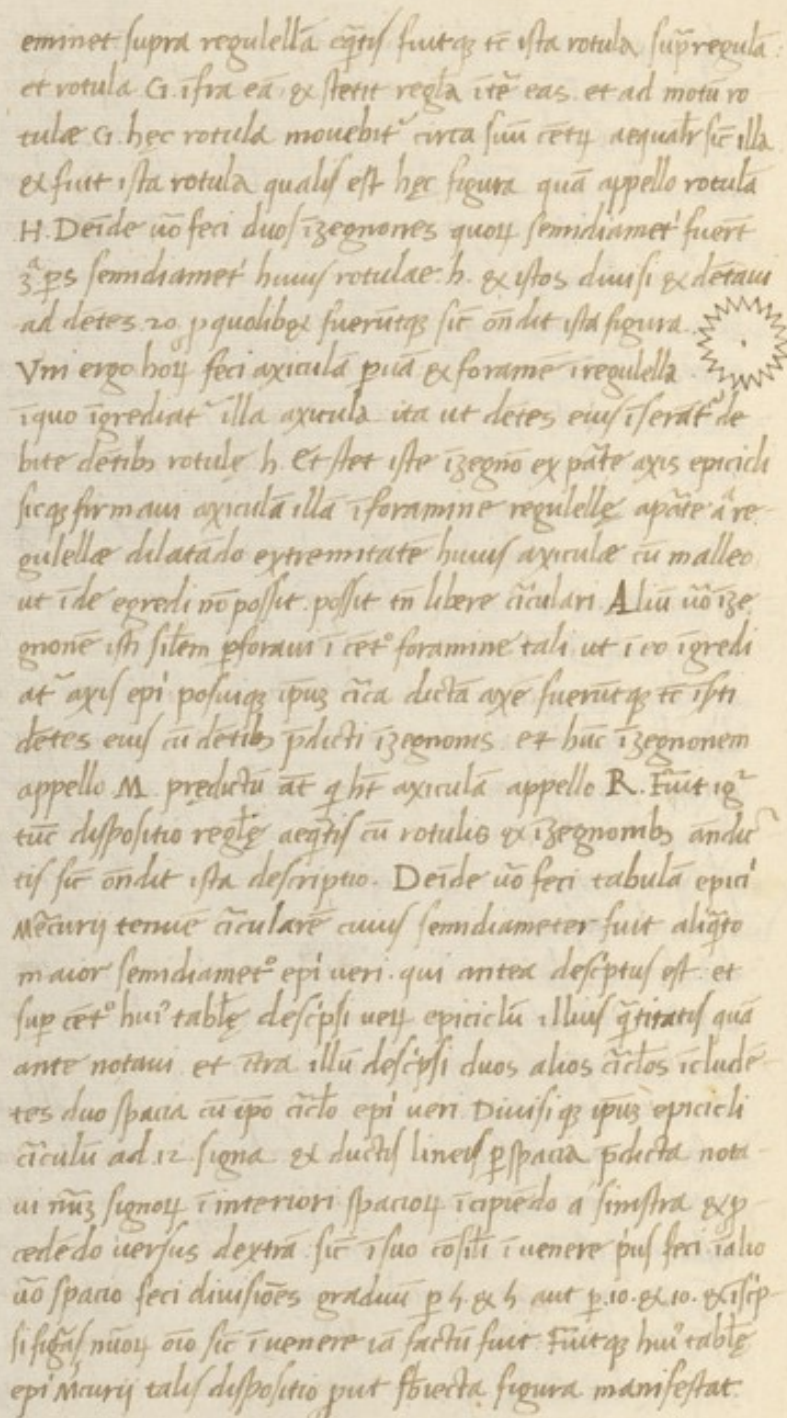 eminet supra regulellā eq̄tis fuitqȝ tc̄ ista rotula sup̄ regulā
et rotula G. īfra eā & stetit regl̄a īt̄e eas et ad motū ro
tulæ G hęc rotula movebit᷑ circa suū cētꝝ aequalr̄ sic̄ illa
& fuit ista rotula qualis est hęc figura quā appello rotulā
H. Deīde ūo feci duos īȝegnones quoꝝ semidiamet' fuer̄t
3ᵃ ꝑs semidiamet' huius rotulae h. & istos divisi & dētavi
ad dētes 20 ꝓ quolibet fuerūtqȝ sic̄ ōn̄dit ista figura
Vni ergo hoꝝ feci axiculā ꝑuā & foramē ī regulella
ī quo īgrediat᷑ illa axicula ita ut dētes eius īserāt᷑ de
bite dētibꝫ rotulę h. Et stet iste īȝegno ex pāte axis epicicli
sicqȝ firmavi axiculā illā ī foramine regulellę apāte re
gulellæ dilatādo extremitatē huius axiculæ cū malleo
ut īde egredi nō possit. possit tn̄ libere cīculari Aliū ūo īȝe
gnonē isti sil̄em ꝑforavi ī cēt° foramine tali ut ī eo īgredi
at᷑ axis epi' posuiqȝ ip̄uȝ cīca dictā axē fuerūtqȝ tc̄ īsti
dētes eius cū dētibꝫ p̄dicti īȝegnonis et hūc īȝegnonem
appello M. prędictū āt q̄ ht̄ axiculā appello R. Fuit ig᷑
tūc dispositio regl̄ę aeq̄tis cū rotulis & īȝegnonibꝫ ān dic
tis sic̄ ōn̄dit ista descriptio. Deīde ūo feci tabulā epici'
Mēcurij tenuē cīcularē cuius semidiameter fuit aliq̄to
maior semidiamet° epi' ueri. qui antea desc'ptus est. et
sup̄ cēt° hui᷒ tabl̄ę desc'psi ueꝝ epiciclū illius q̄titatis quā
ante notavi et īt̄ra illū desc'psi duos alios cīcl̄os īcludē
tes duo spacia cū ip̄o cīcl̄o epi' ueri Divisiqȝ ip̄uȝ epicicli
cīculū ad .12. signa & ductis lineis ꝑ spacia p̄dicta nota
ui nūȝ signoꝝ ī interiori spacioꝝ īcipiēdo a sinistra & ꝓ
cedēdo uersus dextrā sic̄ ī suo cōsil̄i ī venere p'us feci ī alio
ūo spacio feci divisiōes graduū ꝑ 5 & 5 aut ꝑ .10. & .10. & īsc'p
si fig᷑as nūoꝝ oīo sic̄ ī venere iā factū fuit. Fuitqȝ hui᷒ tabl̄ę
epi' M̄curij talis dispositio ꝓut sb̄iecta figura manifestat.